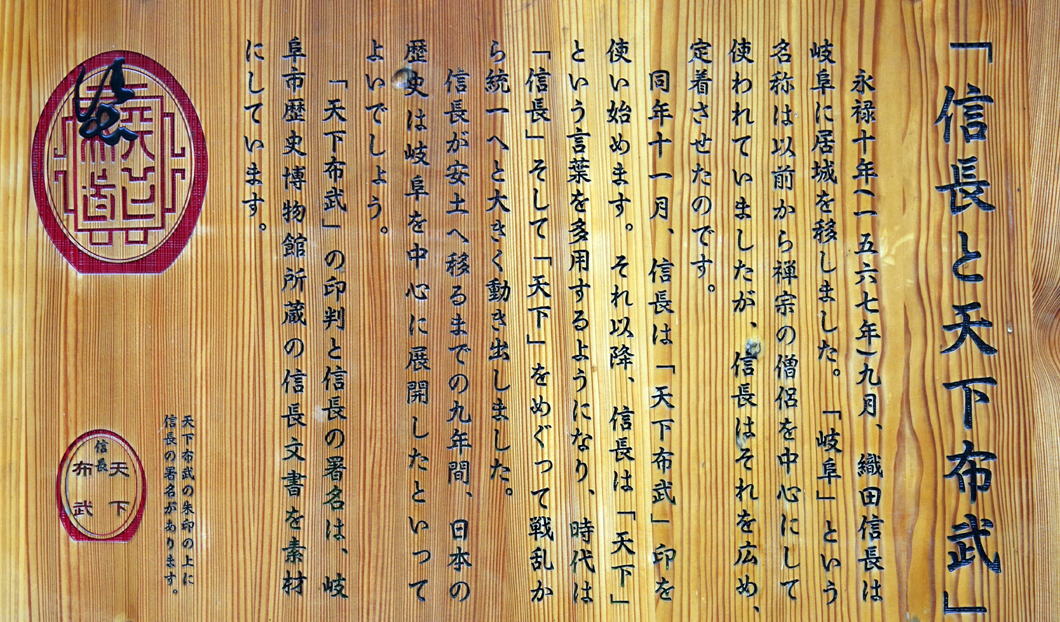 「信長と天下布武」
永禄十年(一五六七年)九月、織田信長は
岐阜に居城を移しました。「岐阜」という
名称は以前から禅宗の僧侶を中心にして
使われていましたが、信長はそれを広め、
定着させたのです。
同年十一月、信長は「天下布武」印を
使い始めます。それ以降、信長は「天下」
という言葉を多用するようになり、時代は
「信長」そして「天下」をめぐって戦乱か
ら統一へと大きく動き出しました。
信長が安土へ移るまでの九年間、日本の
歴史は岐阜を中心に展開したといって
よいでしょう。
「天下布武」の印判と信長の署名は、岐
阜市歴史博物館所蔵の信長文書を素材
にしています。
天下布武の朱印の上に
信長の署名があります。
天下
信長
布武